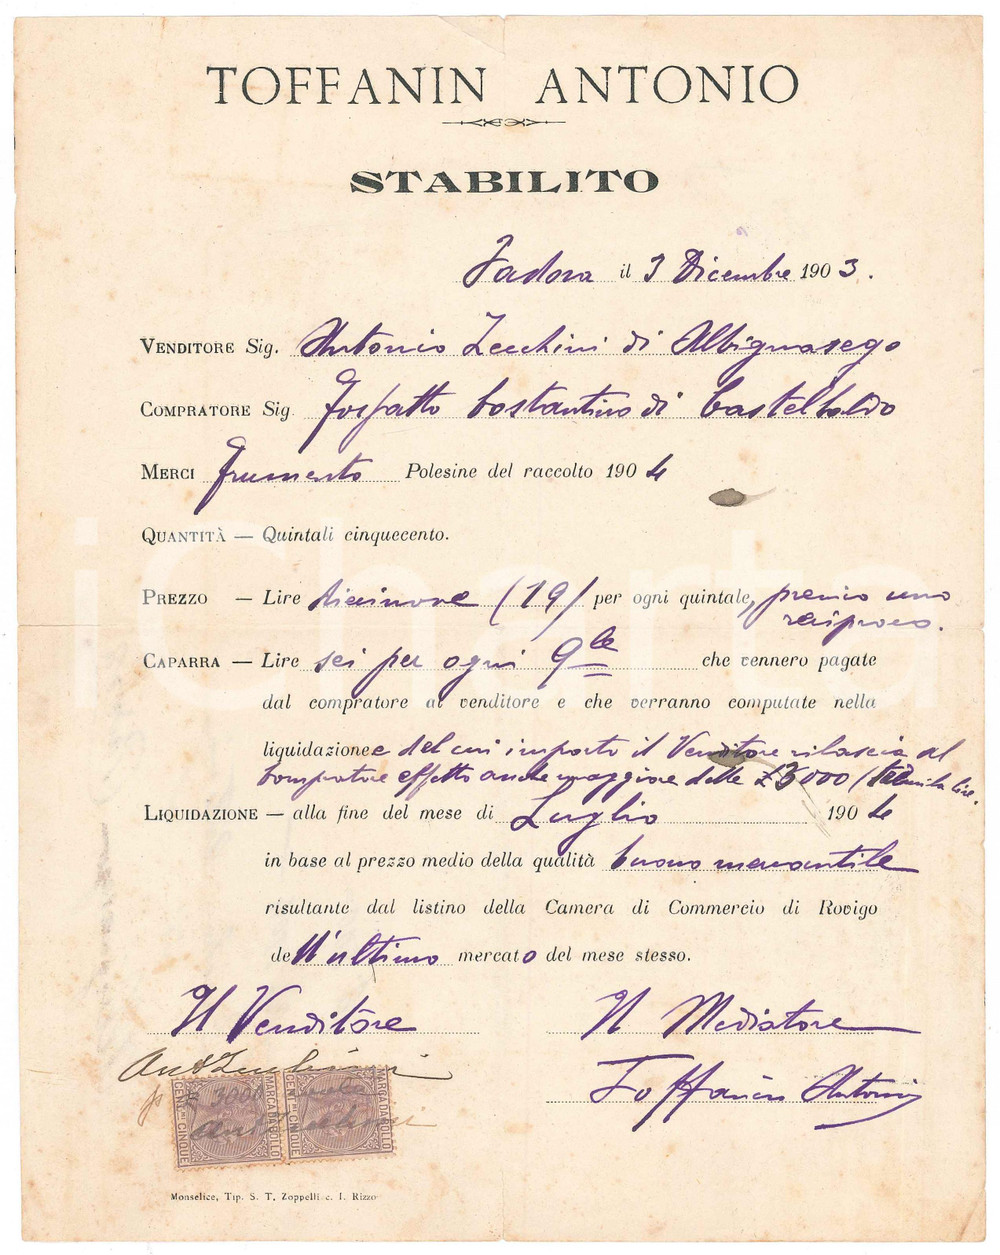 TOFFANIN ANTONIO
STABILITO
Padova il 3 Dicembre 1903.
VENDITORE Sig. Antonio Zecchini di Albignasego
COMPRATORE Sig. Costantino di Castelbaldo
MERCI Frumento Polesine del raccolto 1904
QUANTITÀ — Quintali cinquecento.
PREZZO — Lire diecinove (19) per ogni quintale, premio uno
reciproco.
CAPARRA — Lire sei per ogni Qle che vennero pagate
dal compratore al venditore e che verranno computate nella
liquidazione e del cui importo il Venditore rilascia al
Compratore effetto anche maggiore delle £ 3000 (tremila lire.
LIQUIDAZIONE — alla fine del mese di Luglio 1904
in base al prezzo medio della qualità buono mercantile
risultante dal listino della Camera di Commercio di Rovigo
dell'ultimo mercato del mese stesso.
Il Venditore Il Mediatore
Ant Zecchini Toffanin Antonio
p £ 3000
Ant Zecchini
MARCA DA BOLLO CENT.MI CINQUE MARCA DA BOLLO CENT.MI CINQUE
Monselice, Tip. S. T. Zoppelli e. I. Rizzo
iCharta